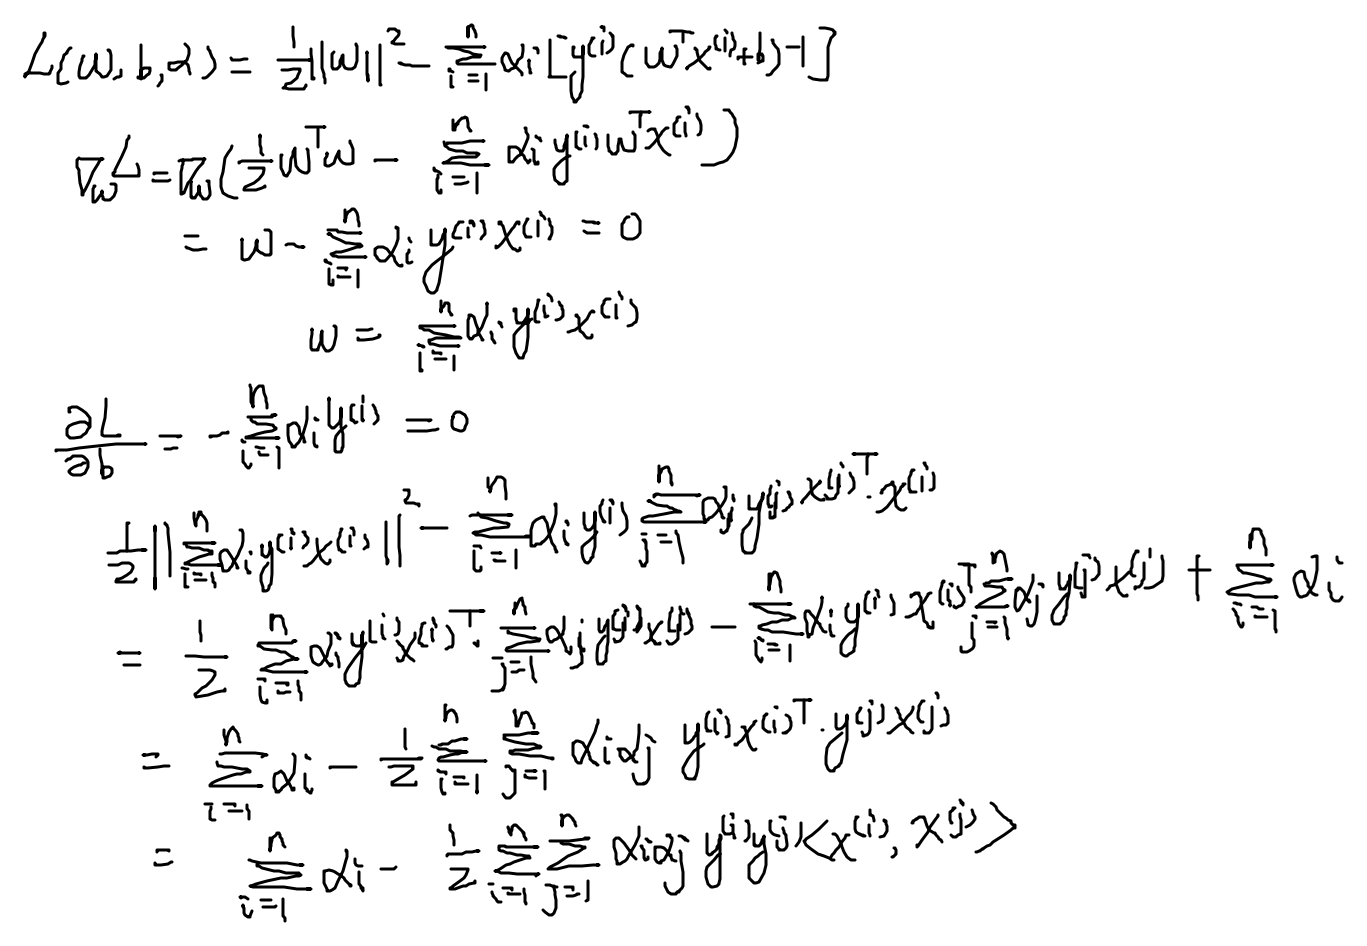 L(w,b,α) = \frac{1}{2}||w||^2 - \sum_{i=1}^{n} α_i [y^{(i)}(w^T x^{(i)}+b)-1]
∇_w L = ∇_w(\frac{1}{2} w^T w - \sum_{i=1}^{n} α_i y^{(i)} w^T x^{(i)})
= w - \sum_{i=1}^{n} α_i y^{(i)} x^{(i)} = 0
w = \sum_{i=1}^{n} α_i y^{(i)} x^{(i)}
\frac{∂L}{∂b} = -\sum_{i=1}^{n} α_i y^{(i)} = 0
\frac{1}{2}||\sum_{i=1}^{n} α_i y^{(i)} x^{(i)}||^2 - \sum_{i=1}^{n} α_i y^{(i)} \sum_{j=1}^{n} α_j y^{(j)} x^{(j)T} · x^{(i)}
= \frac{1}{2} \sum_{i=1}^{n} α_i y^{(i)} x^{(i)T} · \sum_{j=1}^{n} α_j y^{(j)} x^{(j)} - \sum_{i=1}^{n} α_i y^{(i)} x^{(i)T} \sum_{j=1}^{n} α_j y^{(j)} x^{(j)} + \sum_{i=1}^{n} α_i
= \sum_{i=1}^{n} α_i - \frac{1}{2} \sum_{i=1}^{n} \sum_{j=1}^{n} α_i α_j y^{(i)} x^{(i)T} · y^{(j)} x^{(j)}
= \sum_{i=1}^{n} α_i - \frac{1}{2} \sum_{i=1}^{n} \sum_{j=1}^{n} α_i α_j y^{(i)} y^{(j)} <x^{(i)}, x^{(j)}>